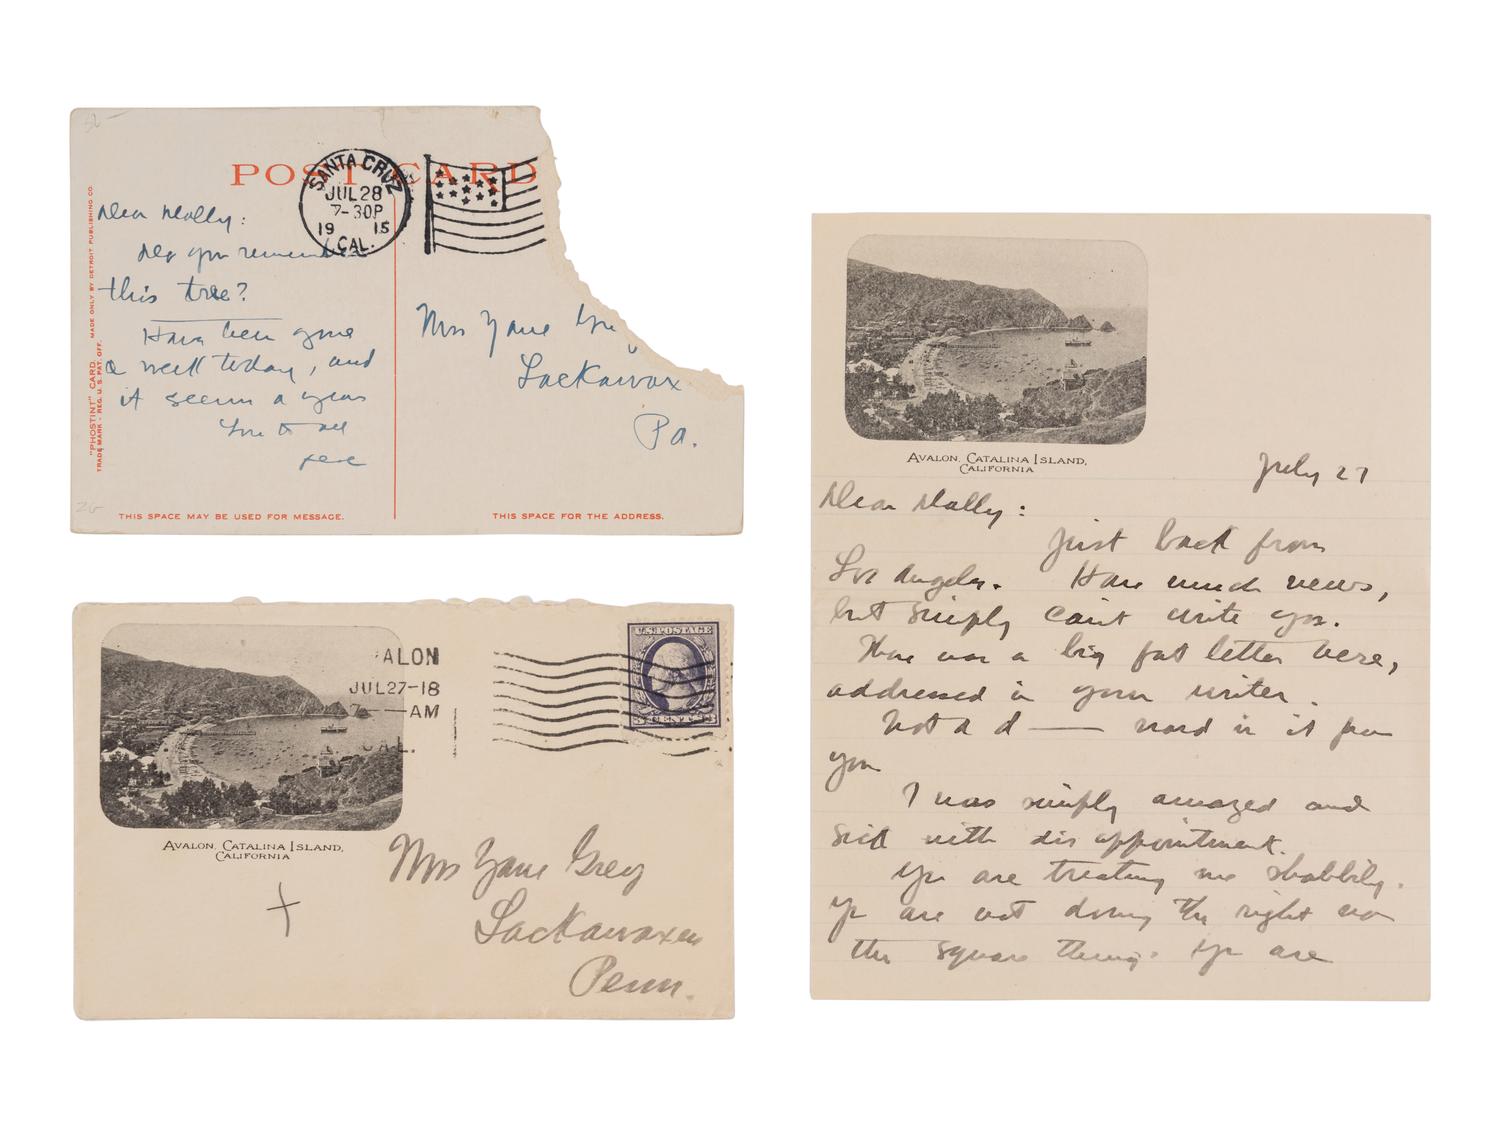 POST CARD
SANTA CRUZ
JUL 28
7-30P
1915
CAL.
Dear Dolly:
Do you remember
this tree?
Have been gone
a week today, and
it seems a year
Love to all
Mrs Zane Gre
Lackawax
Pa.
"PHOSTINT" CARD
TRADE MARK - REG. U. S. PAT. OFF.
MADE ONLY BY DETROIT PUBLISHING CO.
THIS SPACE MAY BE USED FOR MESSAGE.
THIS SPACE FOR THE ADDRESS.
ALON
JUL27-18
7 — AM
CAL.
U.S. POSTAGE
3 CENTS 3
AVALON, CATALINA ISLAND,
CALIFORNIA
Mrs Zane Grey
Lackawaxen
Penn.
AVALON, CATALINA ISLAND,
CALIFORNIA
July 27
Dear Dolly:
Just back from
Los Angeles. Have much news,
but simply can't write you.
There was a big fat letter here,
addressed in your writer.
Not a d— word in it from
you
I was simply amazed and
sick with disappointment.
You are treating me shabbily.
You are not doing the right nor
the square thing. You are